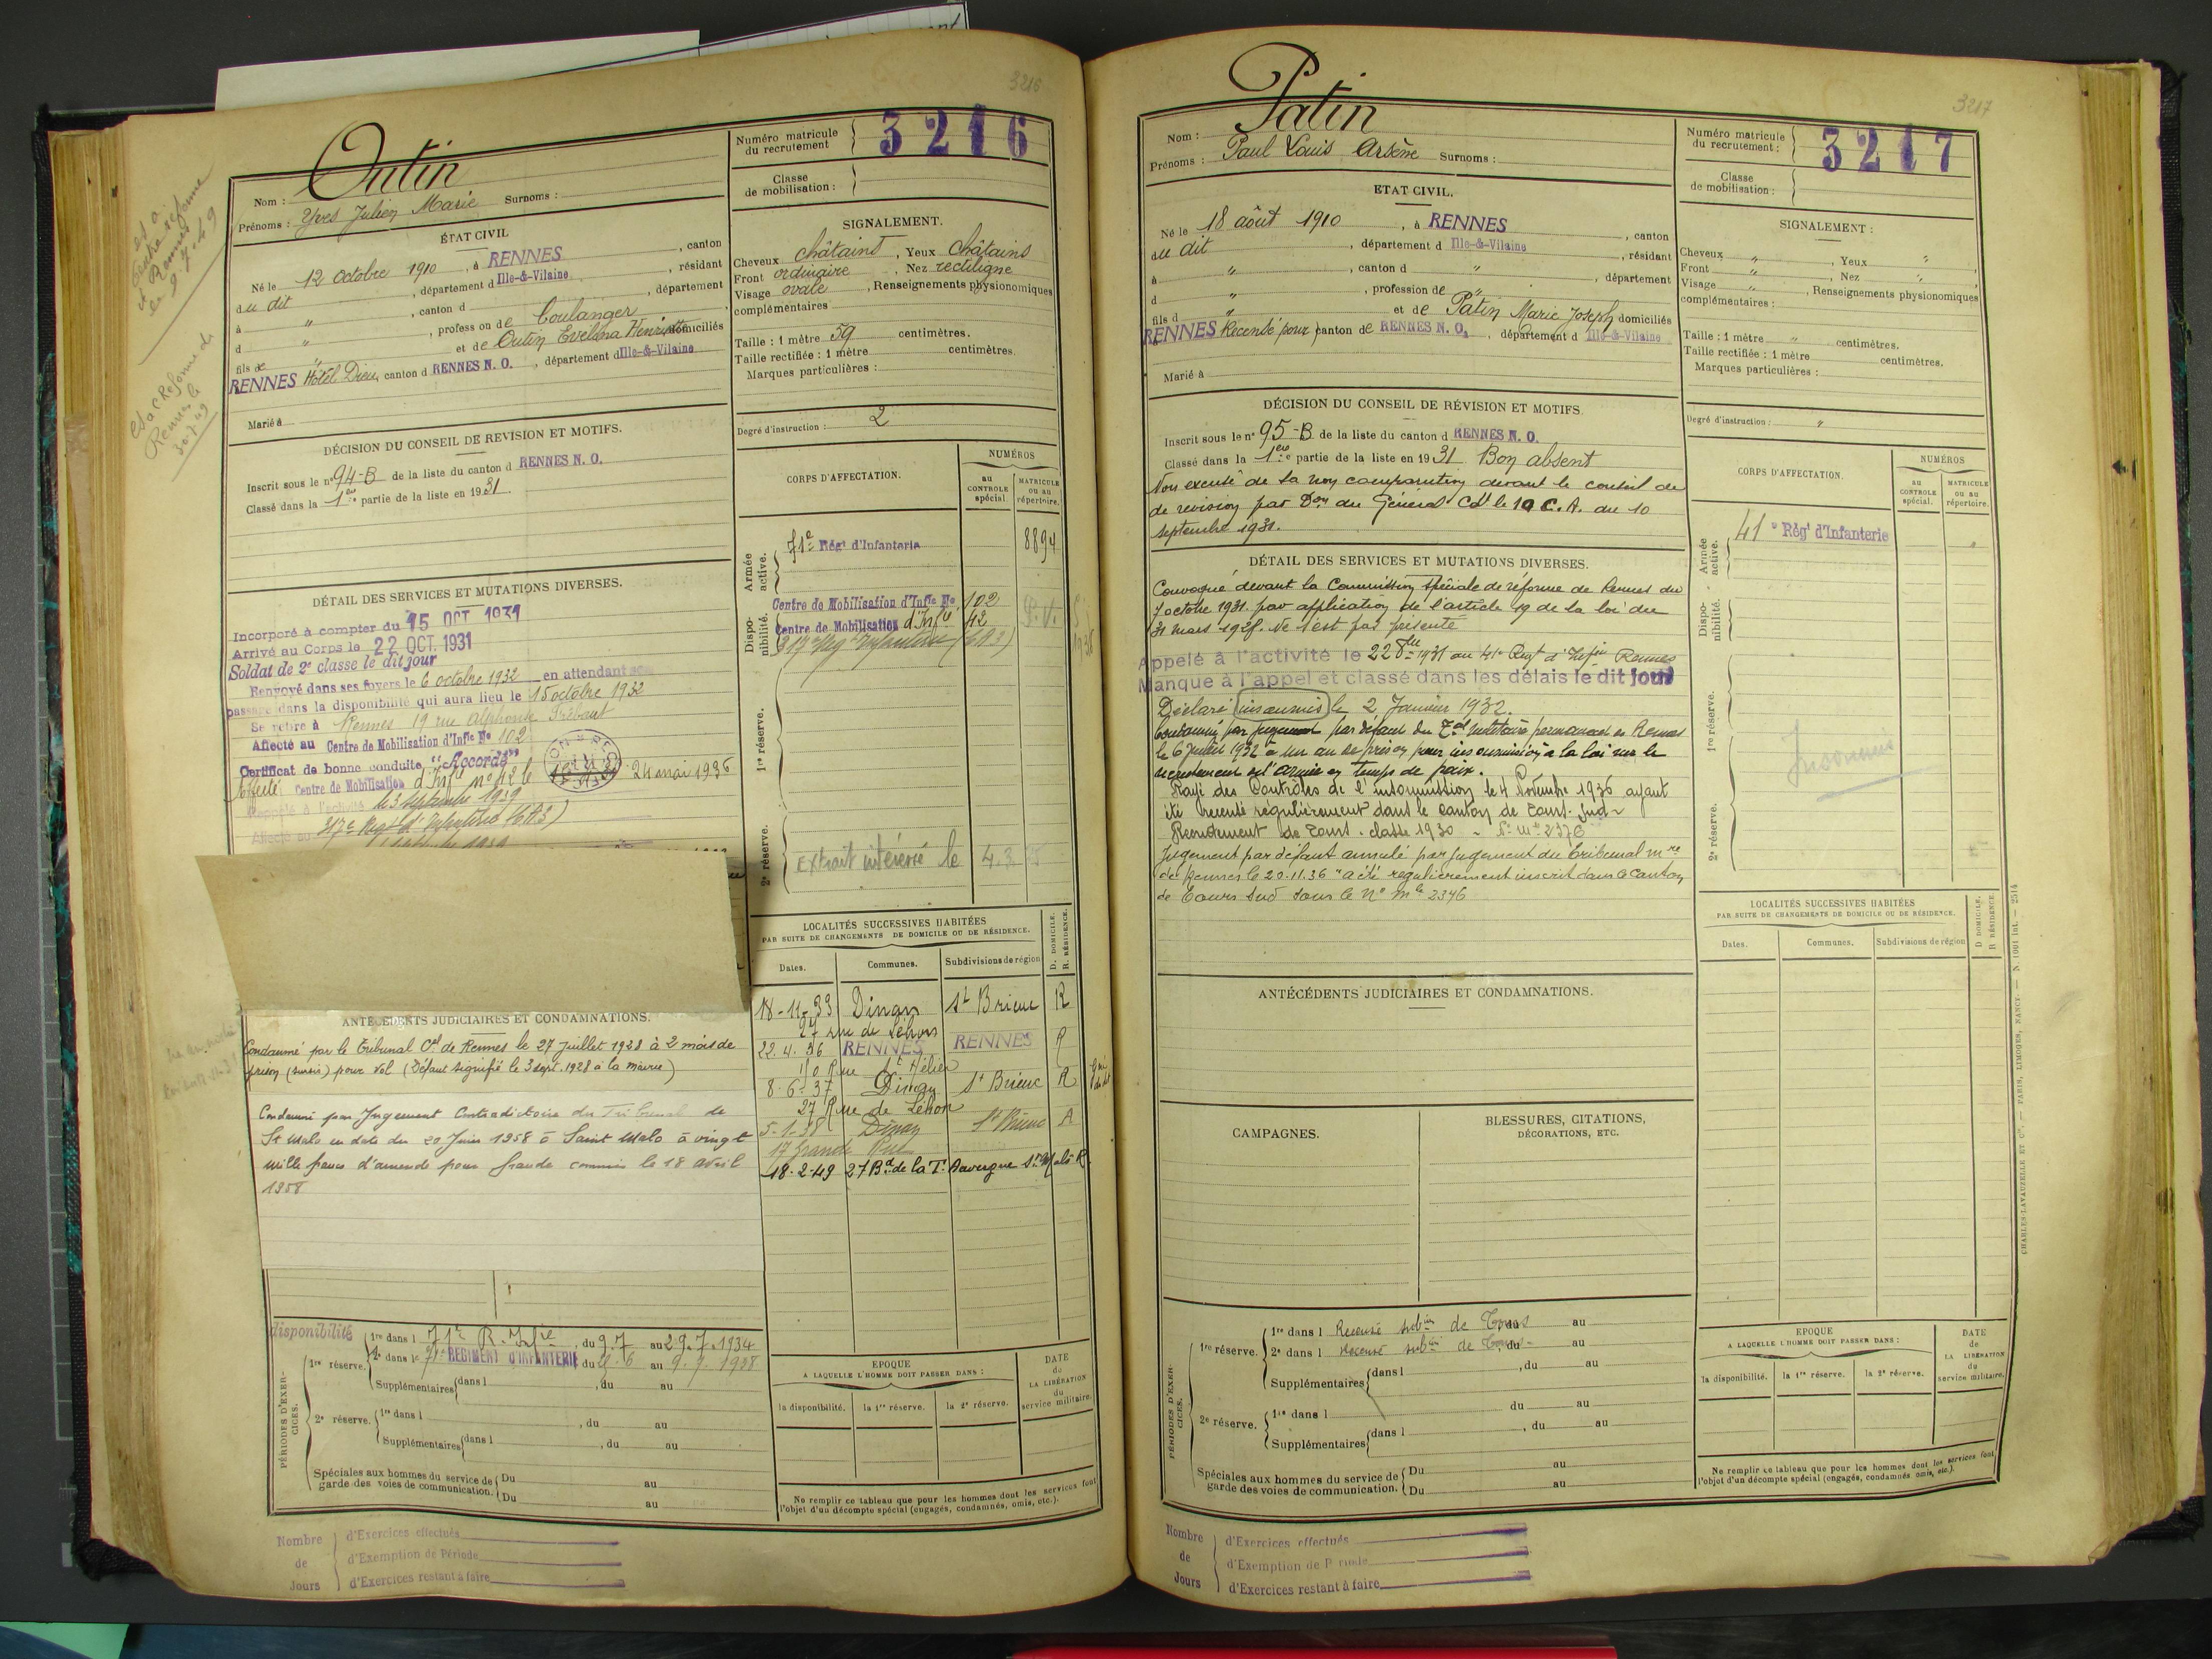 3216
Outin
Nom :
Prénoms : Yves Julien Marie Surnoms :
ÉTAT CIVIL
Né le 12 Octobre 1910, à RENNES, canton
du dit, département d Ille-&-Vilaine, résidant
à ", canton d, département
d ", profession de boulanger
fils de " et de Outin Evelina Henriette domiciliés
RENNES Hôtel Dieu, canton d RENNES N. O., département d Ille-&-Vilaine
Marié à
DÉCISION DU CONSEIL DE REVISION ET MOTIFS.
Inscrit sous le n° 94-B de la liste du canton d RENNES N. O.
Classé dans la 1ère partie de la liste en 1931
DÉTAIL DES SERVICES ET MUTATIONS DIVERSES.
Incorporé à compter du 15 OCT 1931
Arrivé au Corps le 22 OCT. 1931
Soldat de 2e classe le dit jour
Renvoyé dans ses foyers le 6 octobre 1932 en attendant son
passage dans la disponibilité qui aura lieu le 15 octobre 1932
Se retire à Rennes 19 rue Alphonse
Affecté au Centre de Mobilisation d'Infie No 102
Certificat de bonne conduite "Accordé"
Affecté Centre de Mobilisation d'Infie n° 42 le 24 mai 1936
Rappelé à l'activité le 3 septembre 1939
Affecté au 317e Regt d'Infanterie (6A3)
ANTÉCÉDENTS JUDICIAIRES ET CONDAMNATIONS.
Condamné par le Tribunal Cel de Rennes le 27 Juillet 1928 à 2 mois de
prison (sursis) pour vol (Défaut signifié le 3 sept. 1928 à la mairie)
Condamné par Jugement Contradictoire du Tribunal de
St Malo en date du 20 Juin 1958 à Saint Malo à vingt
mille francs d'amende pour fraude commis le 18 avril
1958
disponibilité
PÉRIODES D'EXERCICES.
1re réserve. 1re dans l 71e R. Infie, du 9.7 au 29.7.1934
2e dans le 71e REGIMENT D'INFANTERIE du 6 au 9.7.1938
Supplémentaires dans l, du au
2e réserve. 1re dans l, du au
Supplémentaires dans l, du au
Spéciales aux hommes du service de garde des voies de communication. Du au
Du au
Nombre de Jours
d'Exercices effectués
d'Exemption de Période
d'Exercices restant à faire
Numéro matricule du recrutement 3216
Classe de mobilisation :
SIGNALEMENT.
Cheveux châtains, Yeux châtains
Front ordinaire, Nez rectiligne
Visage ovale, Renseignements physionomiques
complémentaires
Taille : 1 mètre 59 centimètres.
Taille rectifiée : 1 mètre centimètres.
Marques particulières :
Degré d'instruction : 2
CORPS D'AFFECTATION.
NUMÉROS
au CONTROLE spécial
MATRICULE ou au répertoire.
Armée active.
71e Régt d'Infanterie 8894
Disponibilité.
Centre de Mobilisation d'Infie No 102
Centre de Mobilisation d'Infie 42
317e Regt Infanterie (6A3)
1re réserve.
2e réserve.
Extrait intéressé le 4.3
LOCALITÉS SUCCESSIVES HABITÉES
PAR SUITE DE CHANGEMENTS DE DOMICILE OU DE RÉSIDENCE.
D. DOMICILE. R. RÉSIDENCE.
Dates. Communes. Subdivisions de région
18-11-33 Dinan St Brieuc R
27 rue de Léhon
22.4.36 RENNES RENNES R
Rue St Hélier
8-6-37 Dinan St Brieuc R
27 Rue de Léhon
5-1-38 Dinan St Brieuc A
17 Grande Rue
18-2-49 27 Bd de la T. Auvergne St Malo R
EPOQUE
A LAQUELLE L'HOMME DOIT PASSER DANS :
DATE du LA LIBÉRATION du service militaire.
la disponibilité. la 1re réserve. la 2e réserve.
Ne remplir ce tableau que pour les hommes dont les services font
l'objet d'un décompte spécial (engagés, condamnés, omis, etc.).
3217
Patin
Nom :
Prénoms : Paul Louis Arsène Surnoms :
ETAT CIVIL.
Né le 18 août 1910, à RENNES, canton
du dit, département d Ille-&-Vilaine, résidant
à ", canton d ", département
d ", profession de "
fils d " et de Patin Marie Joseph domiciliés
RENNES Recensé pour canton de RENNES N. O., département d Ille-&-Vilaine
Marié à
DÉCISION DU CONSEIL DE RÉVISION ET MOTIFS.
Inscrit sous le n° 95-B de la liste du canton d RENNES N. O.
Classé dans la 1ère partie de la liste en 1931 Bon absent
Non excusé de sa non comparution devant le conseil de
de revision par Don du Général Cdt le 10 C. A. du 10
septembre 1931.
DÉTAIL DES SERVICES ET MUTATIONS DIVERSES.
Convoqué devant la Commission spéciale de réforme de Rennes du
7 octobre 1931. par application de l'article 19 de la loi du
31 mars 1928. Ne s'est pas présenté
Appelé à l'activité le 22 8bre 1931 au 41e Regt d'Infie Rennes
Manque à l'appel et classé dans les délais le dit jour
Déclaré insoumis le 2 Janvier 1932.
Condamné par jugement par défaut du Tal militaire permanent de Rennes
le 6 juillet 1932 à un an de prison pour insoumission à la loi sur le
recrutement de l'armée en temps de paix.
Rayé des Contrôles de l'insoumission le 4 Novembre 1936 ayant
été recensé régulièrement dans le canton de Tours-Sud
Recrutement de Tours. classe 1930 - N° Mle 2376
Jugement par défaut annulé par jugement du Tribunal mre
de Rennes le 20.11.36 "a été régulièrement inscrit dans le Canton
de Tours Sud sous le N° mle 2376
ANTÉCÉDENTS JUDICIAIRES ET CONDAMNATIONS.
CAMPAGNES.
BLESSURES, CITATIONS,
DÉCORATIONS, ETC.
PÉRIODES D'EXERCICES.
1re réserve. 1re dans l Recensé subon de Tours au
2e dans l Recensé subon de Tours du au
Supplémentaires dans l, du au
2e réserve. 1re dans l du au
Supplémentaires dans l, du au
Spéciales aux hommes du service de garde des voies de communication. Du au
Du au
Nombre de Jours
d'Exercices effectués
d'Exemption de P riode
d'Exercices restant à faire
Numéro matricule du recrutement : 3217
Classe de mobilisation :
SIGNALEMENT :
Cheveux ", Yeux "
Front ", Nez "
Visage ", Renseignements physionomiques
complémentaires :
Taille : 1 mètre " centimètres.
Taille rectifiée : 1 mètre centimètres.
Marques particulières :
Degré d'instruction : "
CORPS D'AFFECTATION.
NUMÉROS
au CONTROLE spécial.
MATRICULE ou au répertoire.
Armée active.
41e Régt d'Infanterie "
Disponibilité.
1re réserve.
Insoumis
2e réserve.
LOCALITÉS SUCCESSIVES HABITÉES
PAR SUITE DE CHANGEMENTS DE DOMICILE OU DE RÉSIDENCE.
D DOMICILE. R RÉSIDENCE
Dates. Communes. Subdivisions de région
EPOQUE
A LAQUELLE L'HOMME DOIT PASSER DANS :
DATE de LA LIBÉRATION du service militaire.
la disponibilité. la 1re réserve. la 2e réserve.
Ne remplir ce tableau que pour les hommes dont les services font
l'objet d'un décompte spécial (engagés, condamnés omis, etc.).
CHARLES-LAVAUZELLE ET Cie. — PARIS, LIMOGES, NANCY. — N. 1001 int. — 2514